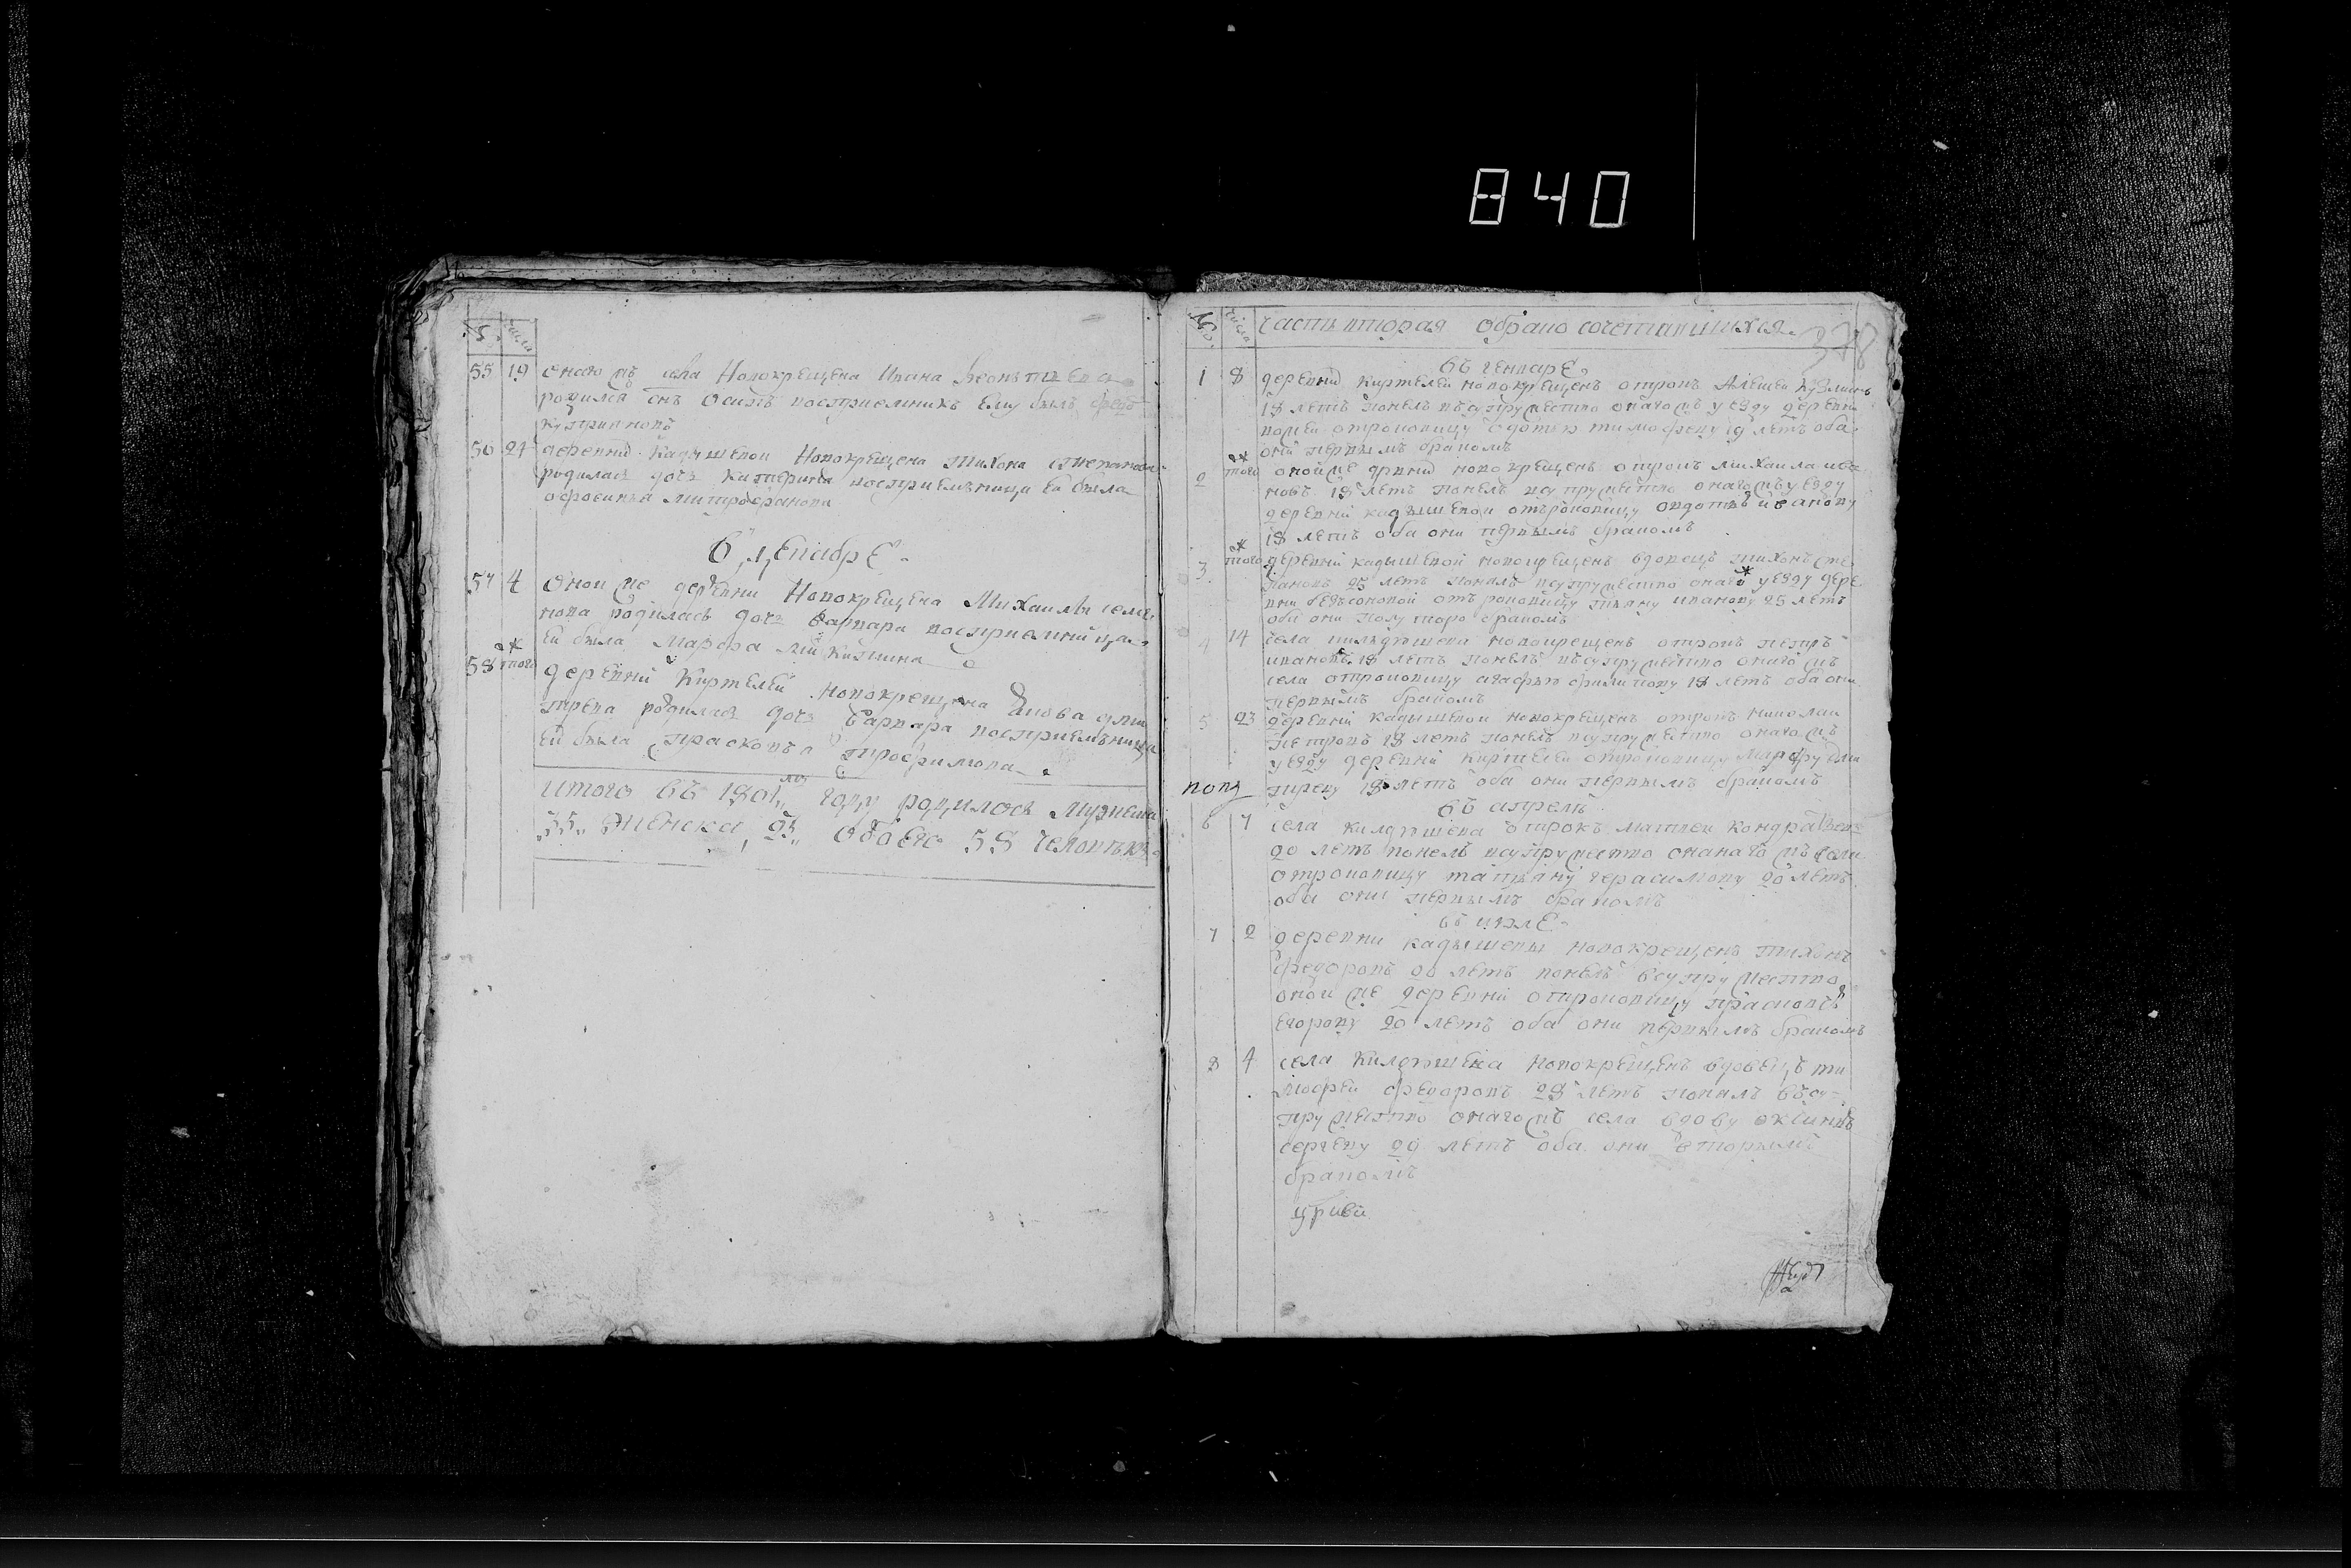 840
№ числа
55 19 Онаго жъ села Новокрещена Ивана Леонтьева
родился снъ Осипъ восприемникъ ему былъ
56 24 деревни Кадышевой Новокрещена Тихона Степанова
родилась дочь Катерина восприемница ей была
Офросинья Митрофанова
въ декабрѣ
57 4 Оной же деревни Новокрещена Михаилы Семе
нова родилась дочь Варвара восприемница
ей была Марфа Никитина
58 того деревни Киртелей Новокрещена
родилась дочь Варвара восприемница
ей была Прасковья Трофимова
итого въ 1801мъ году родилось мужеска
35 женска 23 обоего 58 человѣкъ
№ числа часть вторая о брако сочетавшихся
378
въ генваре
1 8 деревни Киртелей новокрещенъ отрокъ Алексей
18 летъ понелъ въ супружество онаго жъ уезду деревни
отроковицу Тимофееву 19 летъ оба
они первымъ бракомъ
2 того оной же дрвни новокрещенъ отрокъ Михаила Ива
новъ 18 летъ понелъ в супружество онаго жъ уезду
деревни Кадышевой отроковицу Иванову
18 летъ оба они первымъ бракомъ
3 того деревни Кадышевой новокрещенъ вдовецъ Тихонъ Сте
пановъ 25 летъ понялъ в супружество онаго уезду дере
вни отроковицу Иванову 25 летъ
оба они бракомъ
4 14 села Килдюшева новокрещенъ отрокъ Петръ
Ивановъ 18 летъ понелъ въ супружество онаго жъ
села отроковицу Агафью Филипову 18 летъ оба они
первымъ бракомъ
5 23 деревни Кадышевой новокрещенъ отрокъ Николаи
Петровъ 18 летъ понелъ в супружество онаго жъ
уезду деревни Киртелей отроковицу Марфу Дми
триеву 18 летъ оба они первымъ бракомъ
въ апреле
6 7 села Килдюшева отрокъ Матвеи Кондратьевъ
20 летъ понелъ в супружество онанаго жъ села
отроковицу Татьяну Герасимову 20 летъ
оба они первымъ бракомъ
въ июле
7 2 деревни Кадышевы новокрещенъ Тихонъ
Федоровъ 20 летъ понелъ в супружество
оной же деревни отроковицу Прасковью
Егорову 20 летъ оба они первымъ бракомъ
8 4 села Килдюшева Новокрещенъ вдовецъ Ти
мофей Федоровъ 28 летъ понялъ въ су-
пружество онаго жъ села вдову Оксинью
Сергееву 29 летъ оба они вторымъ
бракомъ